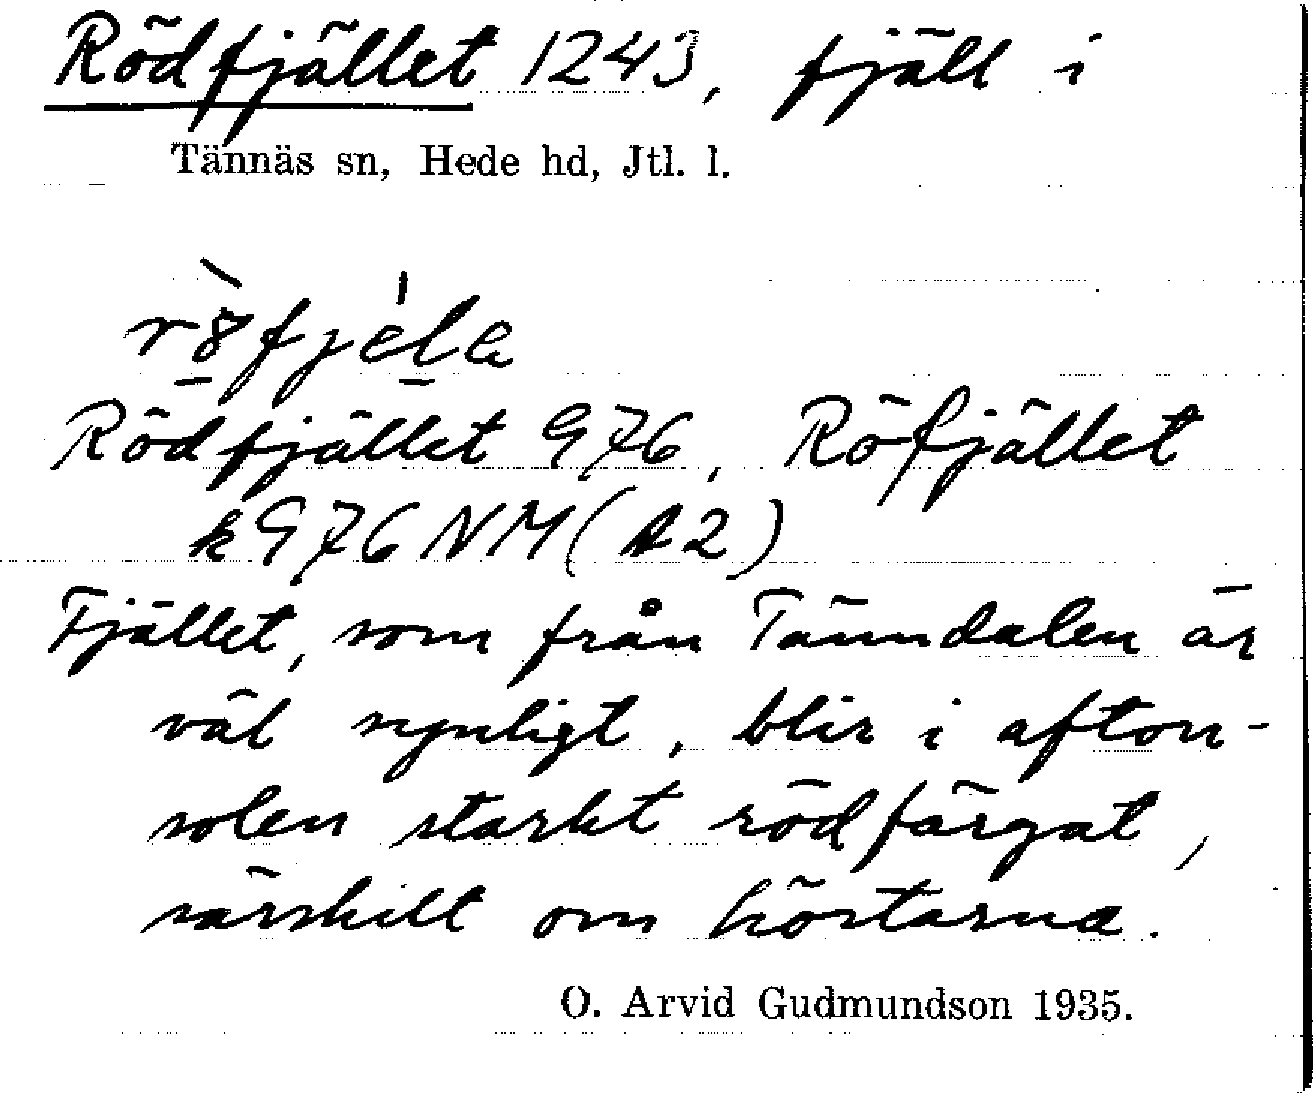 Rödfjället 1243, fjäll i
Tännäs sn, Hede hd, Jtl. l.
Rödfjället 976, Röfjället
k976 NM (A2)
Fjället, som från Tänndalen är
väl synligt, blir i afton-
solen starkt rödfärgat,
särskilt om höstarna.
O. Arvid Gudmundson 1935.